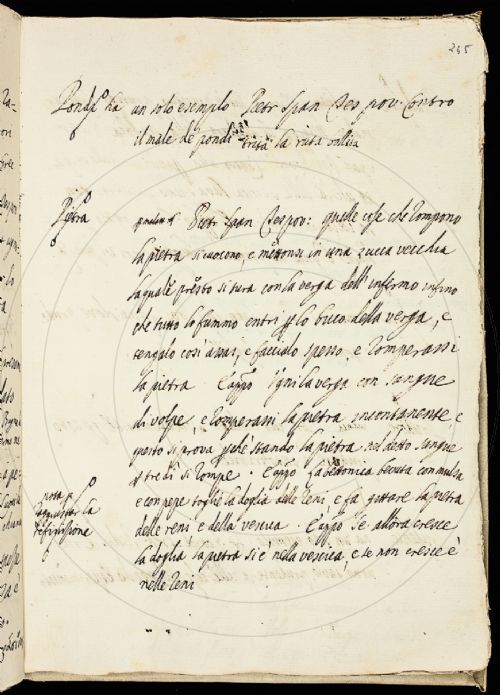 265
ha un solo esempio Pietr Span Tes pov. Contro
il male de pondi trita la ruta
Pietra
Pietr Span Tes pov: quelle cose che rompono
la pietra si cuocono, e mettonsi in una zucca vecchia
la quale presto si tura con la verga dell' infermo infino
che tutto lo fumo entri lo buco della verga, e
tengalo così assai, e faccialo spesso, e romperassi
la pietra ugni la verga con sangue
di volpe, e romperassi la pietra incontanente, e
questo si prova stando la pietra nel detto sangue
tre dì si rompe. la bettonica bevuta con mulsa
e con pepe toglie la doglia delle reni, e fa gittare la pietra
delle reni e della vescica. Se allora cresce
la doglia la pietra si è nella vescica, e se non cresce è
nelle reni
nota
la